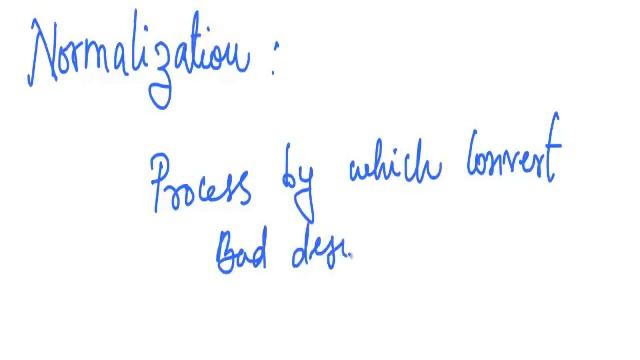 Normalization :
Process by which convert
Bad desi